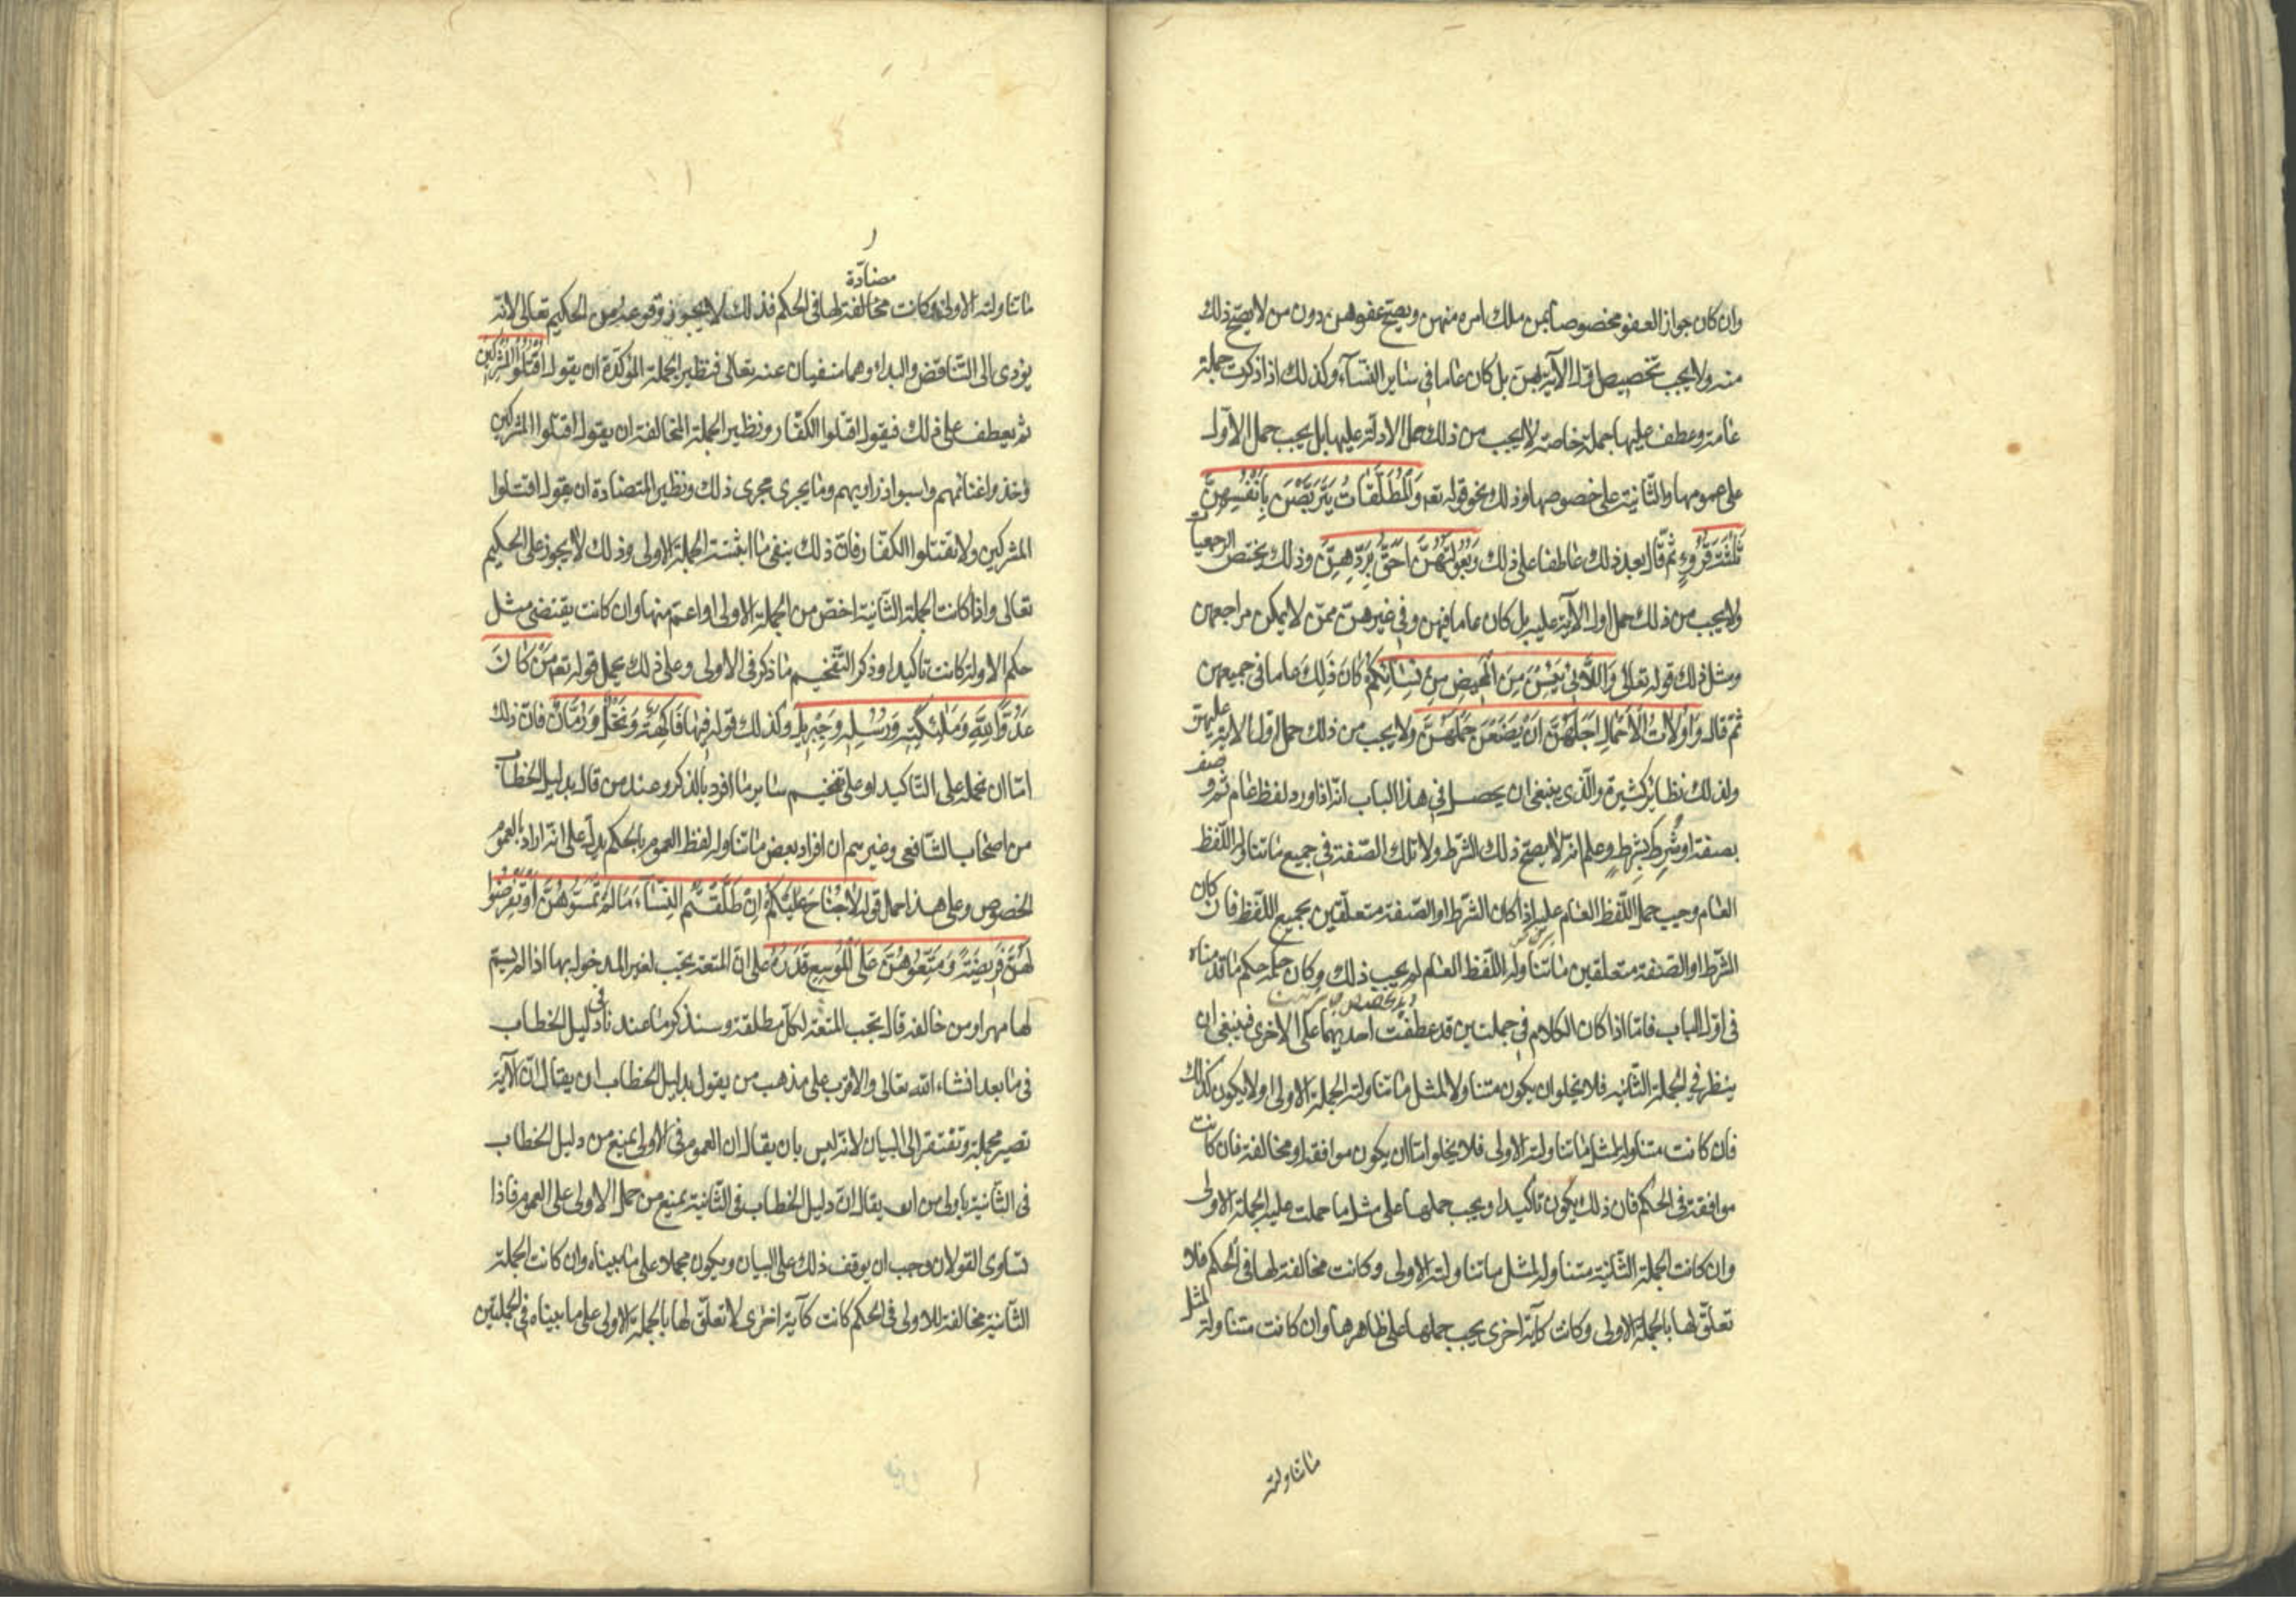 وان كان جواز العفو مخصوصا بمن ملك امره منهن ويصح عفوهن دون من لا يصح ذلك
منه ولا يجب تخصيص اول الآية بهن بل كان عاما في ساير النسآء وكذلك اذا ذكرت جملة
عامة وعطف عليها جملة خاصة لا يجب من ذلك حمل الاولة عليها بل يجب حمل الاول
على عمومها والثانية على خصوصها وذلك نحو قوله تعه وَالْمُطَلَّقَاتُ يَتَرَبَّصْنَ بِاَنْفُسِهِنَّ
ثَلٰثَةَ قُرُوءٍ ثم قال بعد ذلك عاطفا على ذلك وَبُعُولَتُهُنَّ اَحَقُّ بِرَدِّهِنَّ وذلك يختص الرجعيات
ولا يجب من ذلك حمل اول الآية عليه بل كان عاما فيهن وفي غيرهن ممن لا يمكن مراجعتهن
ومثل ذلك قوله تعالى وَاللَّائى يَئِسْنَ مِنَ الْمَحِيضِ مِنْ نِسَائِكُمْ كان ذلك عاما في جميعهن
ثم قال وَاُولَاتُ الْاَحْمَالِ اَجَلُهُنَّ اَنْ يَضَعْنَ حَمْلَهُنَّ ولا يجب من ذلك حمل اول الآية عليهن
ولذلك نظاير كثيرة والذى ينبغى ان يحصل في هذا الباب انه اذا ورد لفظ عام ثم وصف
بصفة او شرط بشرط وعلم انه لا يصح ذلك الشرط ولا تلك الصفة في جميع ما تناوله اللفظ
العام وجب حمل اللفظ العام عليه اذا كان الشرط او الصفة متعلقين بجميع اللفظ فان كان
الشرط او الصفة متعلقين ما تناوله اللفظ العام لم يجب ذلك وكان حكمه حكم ما قدمناه
في اول الباب فاما اذا كان الكلام في جملتين قد عطفت احديهما على الاخرى فينبغى ان
ينظر في الجملة الثانية فلا يخلو ان يكون متناولا لمثل ما تناولته الجملة الاولى او لا يكون كذلك
فان كانت متناولة لمثل ما تناولته الاولى فلا يخلوا اما ان يكون موافقة او مخالفة فان كانت
موافقة في الحكم فان ذلك يكون تأكيدا ويجب حملها على مثل ما حملت عليه الجملة الاولى
وان كانت الجملة الثانية متناولة لمثل ما تناولته الاولى وكانت مخالفة لها في الحكم فلا
تعلق لها بالجملة الاولى وكانت كآية اخرى يجب حملها على ظاهرها وان كانت متناولة لمثل
ما تناولته
مضادّة
ما تناولته الاولى وكانت مخالفة لها في الحكم فذلك لا يجوز وقوعه من الحكيم تعالى لانه
يؤدى الى التناقض والبداء وهما منفيان عنه تعالى فنظير الجملة المؤكدة ان يقول اقْتُلُوا الْمُشْرِكِينَ
ثم يعطف على ذلك فيقول اقتلوا الكفّار ونظير الجملة المخالفة ان يقول اقتلوا المشركين
وخذوا غنائمهم واسبوا ذراريهم وما يجرى مجرى ذلك ونظير المتضادة ان يقول اقتلوا
المشركين ولا تقتلوا الكفّار فان ذلك ينفى ما اثبتته الجملة الاولى وذلك لا يجوز على الحكيم
تعالى واذا كانت الجملة الثانية اخصّ من الجملة الاولى او اعمّ منها وان كانت يقتضى مثل
حكم الاولة كانت تاكيدا وذكر التفخيم ما ذكر في الاولى وعلى ذلك يحمل قوله تعه مَنْ كَانَ
عَدُوًّا لِلّٰهِ وَمَلٰئِكَتِهِ وَرُسُلِهِ وَجِبْرِيلَ وكذلك قوله فِيهَا فَاكِهَةٌ وَنَخْلٌ وَرُمَّانٌ فان ذلك
امّا ان نحمله على التاكيد او على تفخيم ساير ما افرد بالذكر وعند من قال بدليل الخطاب
من اصحاب الشافعى وغيرهم ان افراد بعض ما تناوله لفظ العموم بالحكم يدل على انه اراد بالعموم
الخصوص وعلى هذا حمل قوله لَا جُنَاحَ عَلَيْكُمْ اِنْ طَلَّقْتُمُ النِّسَاءَ مَا لَمْ تَمَسُّوهُنَّ اَوْ تَفْرِضُوا
لَهُنَّ فَرِيضَةً وَمَتِّعُوهُنَّ عَلَى الْمُوسِعِ قَدَرُهُ على ان المتعة يجب لغير المدخول بها اذا لم يسم
لها مهر او من خالفه قال يجب المتعة لكل مطلقة وسنذكر ما عندنا في دليل الخطاب
في ما بعد انشاء الله تعالى والاقرب على مذهب من يقول بدليل الخطاب ان يقال ان الآية
تصير مجملة وتفتقر الى البيان لانه ليس بان يقال ان العموم في الاولى يمنع من دليل الخطاب
في الثانية باولى من ان يقال ان دليل الخطاب في الثانية يمنع من حمل الاولى على العموم فاذا
تساوى القولان وجب ان يوقف ذلك على البيان ويكون مجملا على ما بيناه وان كانت الجملة
الثانية مخالفة للاولى في الحكم كانت كآية اخرى لا تعلق لها بالجملة الاولى على ما بيناه في الجملتين